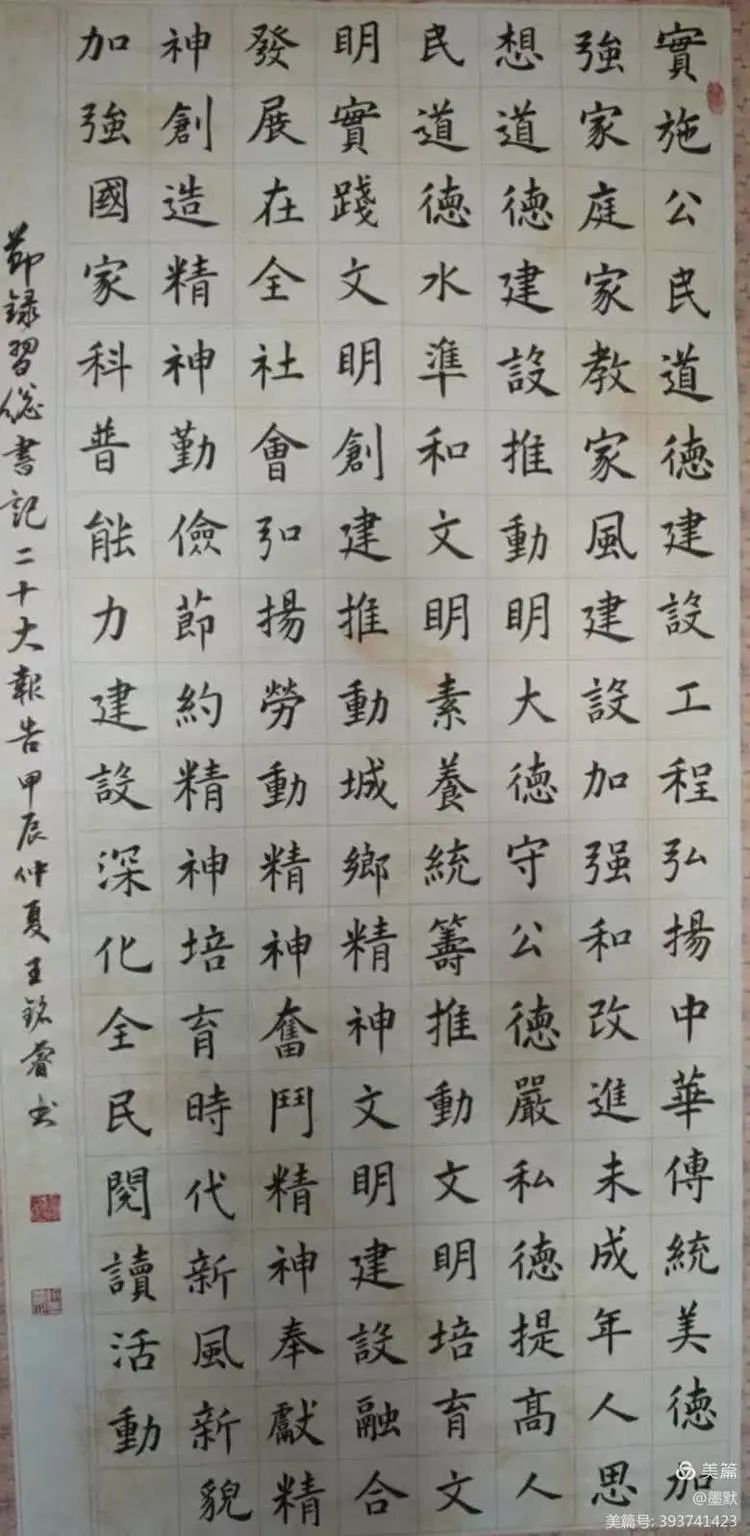 實施公民道德建設工程弘揚中華傳統美德加
強家庭家教家風建設加强和改進未成年人思
想道德建設推動明大德守公德嚴私德提高人
民道德水準和文明素養統籌推動文明培育文
明實踐文明創建推動城鄉精神文明建設融合
發展在全社會弘揚勞動精神奮鬥精神奉獻精
神創造精神勤儉節約精神培育時代新風新貌
加強國家科普能力建設深化全民閱讀活動
節録習總書記二十大報告甲辰仲夏王銘睿书
美篇
@墨默
美篇号: 393741423